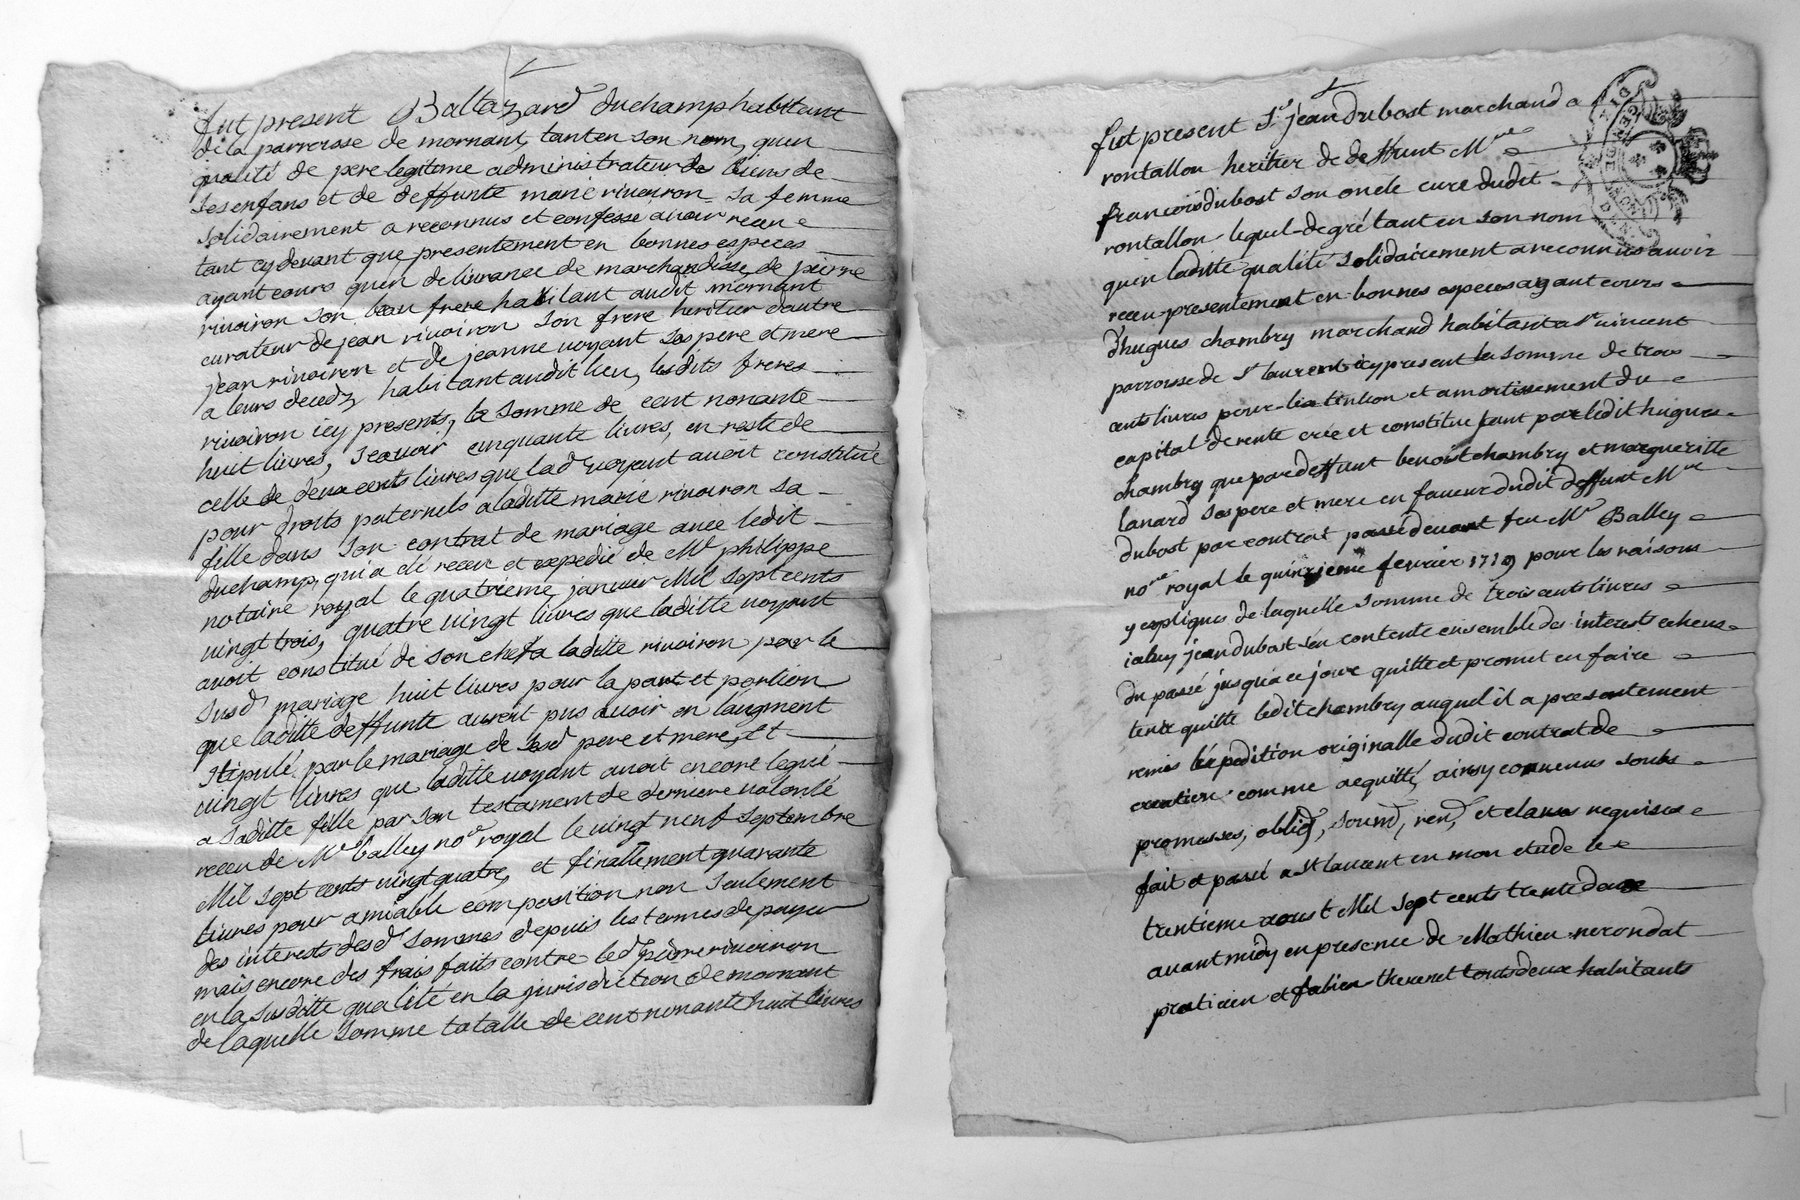 fut present Baltazard duchamp habitant
de la parroisse de mornant, tant en son nom, quen
qualité de pere legitime administrateur de biens de
ses enfans et de deffunte marie rivoiron sa femme
solidairement a reconnus et confesse avoir receu
tant cy devant que presentement en bonnes especes
ayant cours quen delivrance de marchandise, de pierre
rivoiron son beau frere habitant audit mornant
curateur de jean rivoiron son frere heritier dautre
jean rivoiron et de jeanne voyant ses pere et mere
a leurs deceds habitant audit lieu, lesdits freres
rivoiron icy presents, la somme de cent nonante
huit livres, scavoir cinquante livres, en reste de
celle de deux cents livres que lad voyant avoit constitué
pour droits paternels a laditte marie rivoiron sa
fille dans son contrat de mariage avec ledit
duchamp, qui a été receu et expedié de Me philippe
notaire royal le quatrieme janvier Mil sept cents
vingt trois, quatre vingt livres que laditte voyant
avoit constitué de son chef a laditte rivoiron par le
susd mariage huit livres pour la part et portion
que laditte deffunte auroit pus avoir en laugment
stipulé par le mariage de sesd pere et mere, Et
vingt livres que laditte voyant avoit encore legué
a saditte fille par son testament de derniere volonté
receu de Me balley nore royal le vingt neuf septembre
Mil sept cents vingt quatre, et finallement quarante
livres pour amiable composition non seulement
des interests desd sommes depuis les termes de payer
mais encore des frais faits contre led pierre rivoiron
en la susditte qualité en la jurisdiction de mornant
de laquelle somme totalle de cent nonante huit livres
fut present Sr jean dubost marchand a
rontallon heritier de deffunt Mre
francois dubost son oncle curé dudit
rontallon lequel de gré tant en son nom
quen laditte qualité solidairement a reconnus avoir
receu presentement en bonnes especes ayant cours
d'hugues chambry marchand habitant a St vincent
parroisse de St laurent icy present la somme de trois
cents livres pour lextintion et amortissement du
capital de rente crée et constitue tant par ledit hugues
chambry que par deffunt benoist chambry et margueritte
lanard ses pere et mere en faveur dudit deffunt Mre
dubost par contrat passé devant feu Me Balley
nore royal le quinzieme fevrier 1719 pour les raisons
y expliqués de laquelle somme de trois cents livres
iceluy jean dubost sen contente ensemble des interests echeus
du passé jusqua ce jour quitte et promet en faire
tenir quitte ledit chambry auquel il a presentement
remis lexpedition originalle dudit contrat de
creation comme acquitté, ainsy convenus soubs
promesses, obligd, soumd, rend, et clauses requises
fait et passé a St laurent en mon etude le
trentieme aoust Mil sept cents trente deux
avant midy en presence de Mathieu nerondat
praticien et fabien thevenet touts deux habitants